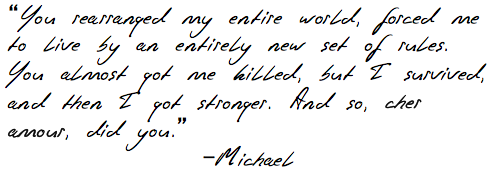 “You rearranged my entire world, forced me
to live by an entirely new set of rules.
You almost got me killed, but I survived,
and then I got stronger. And so, cher
amour, did you.”
-Michael